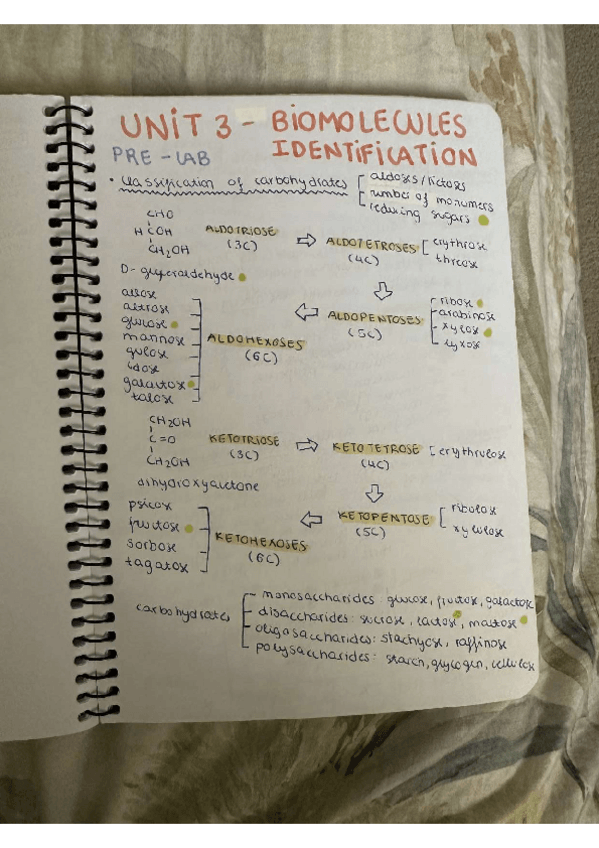 UNIT 3 - BIOMOLECULES
PRE - LAB IDENTIFICATION
• Classification of carbohydrates
aldoses/ketoses
number of monumers
reducing sugars
CHO
H COH
CH2OH
ALDOTRIOSE
(3C)
ALDOTETROSES
(4C)
erythrose
threose
D- glyceraldehyde
ALDOPENTOSES
(5C)
ribose
arabinose
xylose
lyxose
ALDOHEXOSES
(6C)
allose
altrose
glucose
mannose
gulose
idose
galactose
talose
CH2OH
C=O
CH2OH
KETOTRIOSE
(3C)
KETOTETROSE
(4C)
erythrulose
dihydroxyacetone
KETOPENTOSE
(5C)
ribulose
xylulose
KETOHEXOSES
(6C)
psicose
fructose
sorbose
tagatose
carbohydrates
monosaccharides glucose, fructose, galactose
disaccharides: sucrose, lactose, maltose
oligosaccharides: stachyose, raffinose
polysaccharides: starch, glycogen, cellulose